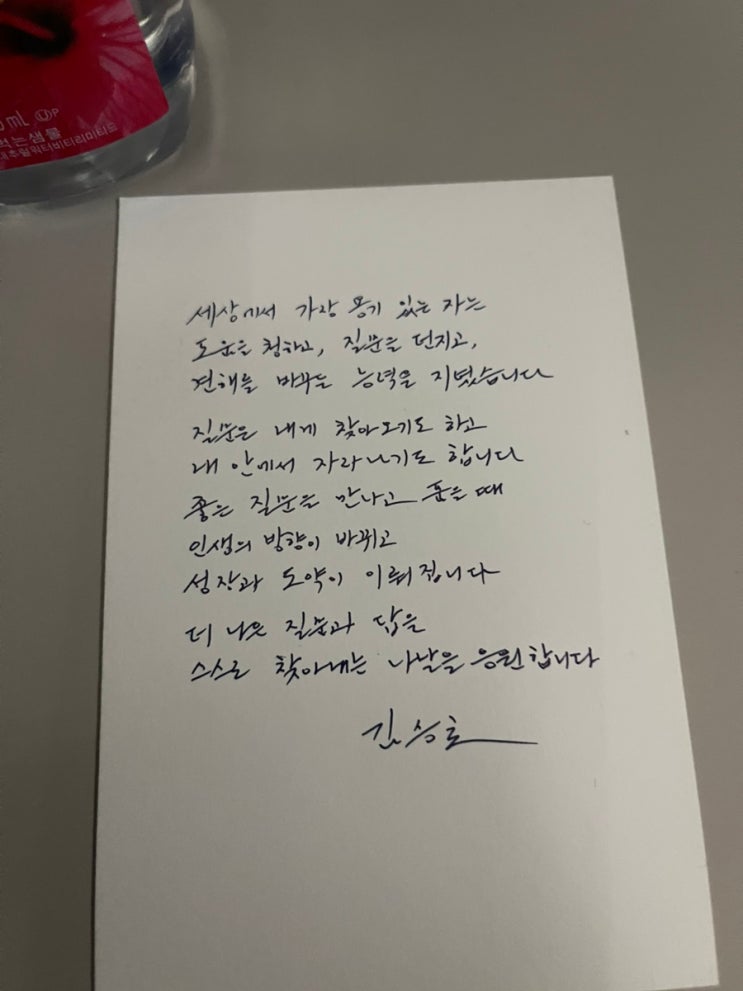 mL
먹는샘물
세상에서 가장 용기 있는 자는
도움을 청하고, 질문을 던지고,
견해를 바꾸는 능력을 지녔습니다
질문은 내게 찾아오기도 하고
내 안에서 자라나기도 합니다
좋은 질문을 만나고 품을 때
인생의 방향이 바뀌고
성장과 도약이 이뤄집니다
더 나은 질문과 답을
스스로 찾아내는 나날을 응원합니다
김승호